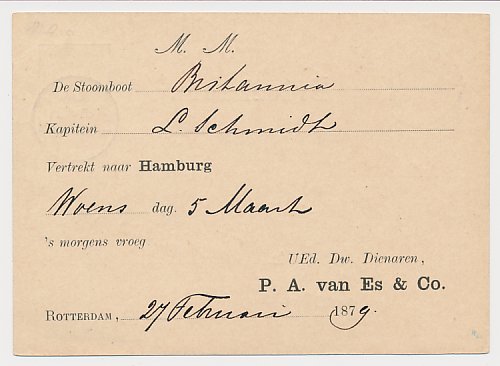 M. M.
De Stoomboot Britannia
Kapitein L. Schmidt
Vertrekt naar Hamburg
Woens dag. 5 Maart
's morgens vroeg
UEd. Dw. Dienaren,
P. A. van Es & Co.
Rotterdam, 27 Februari 1879.